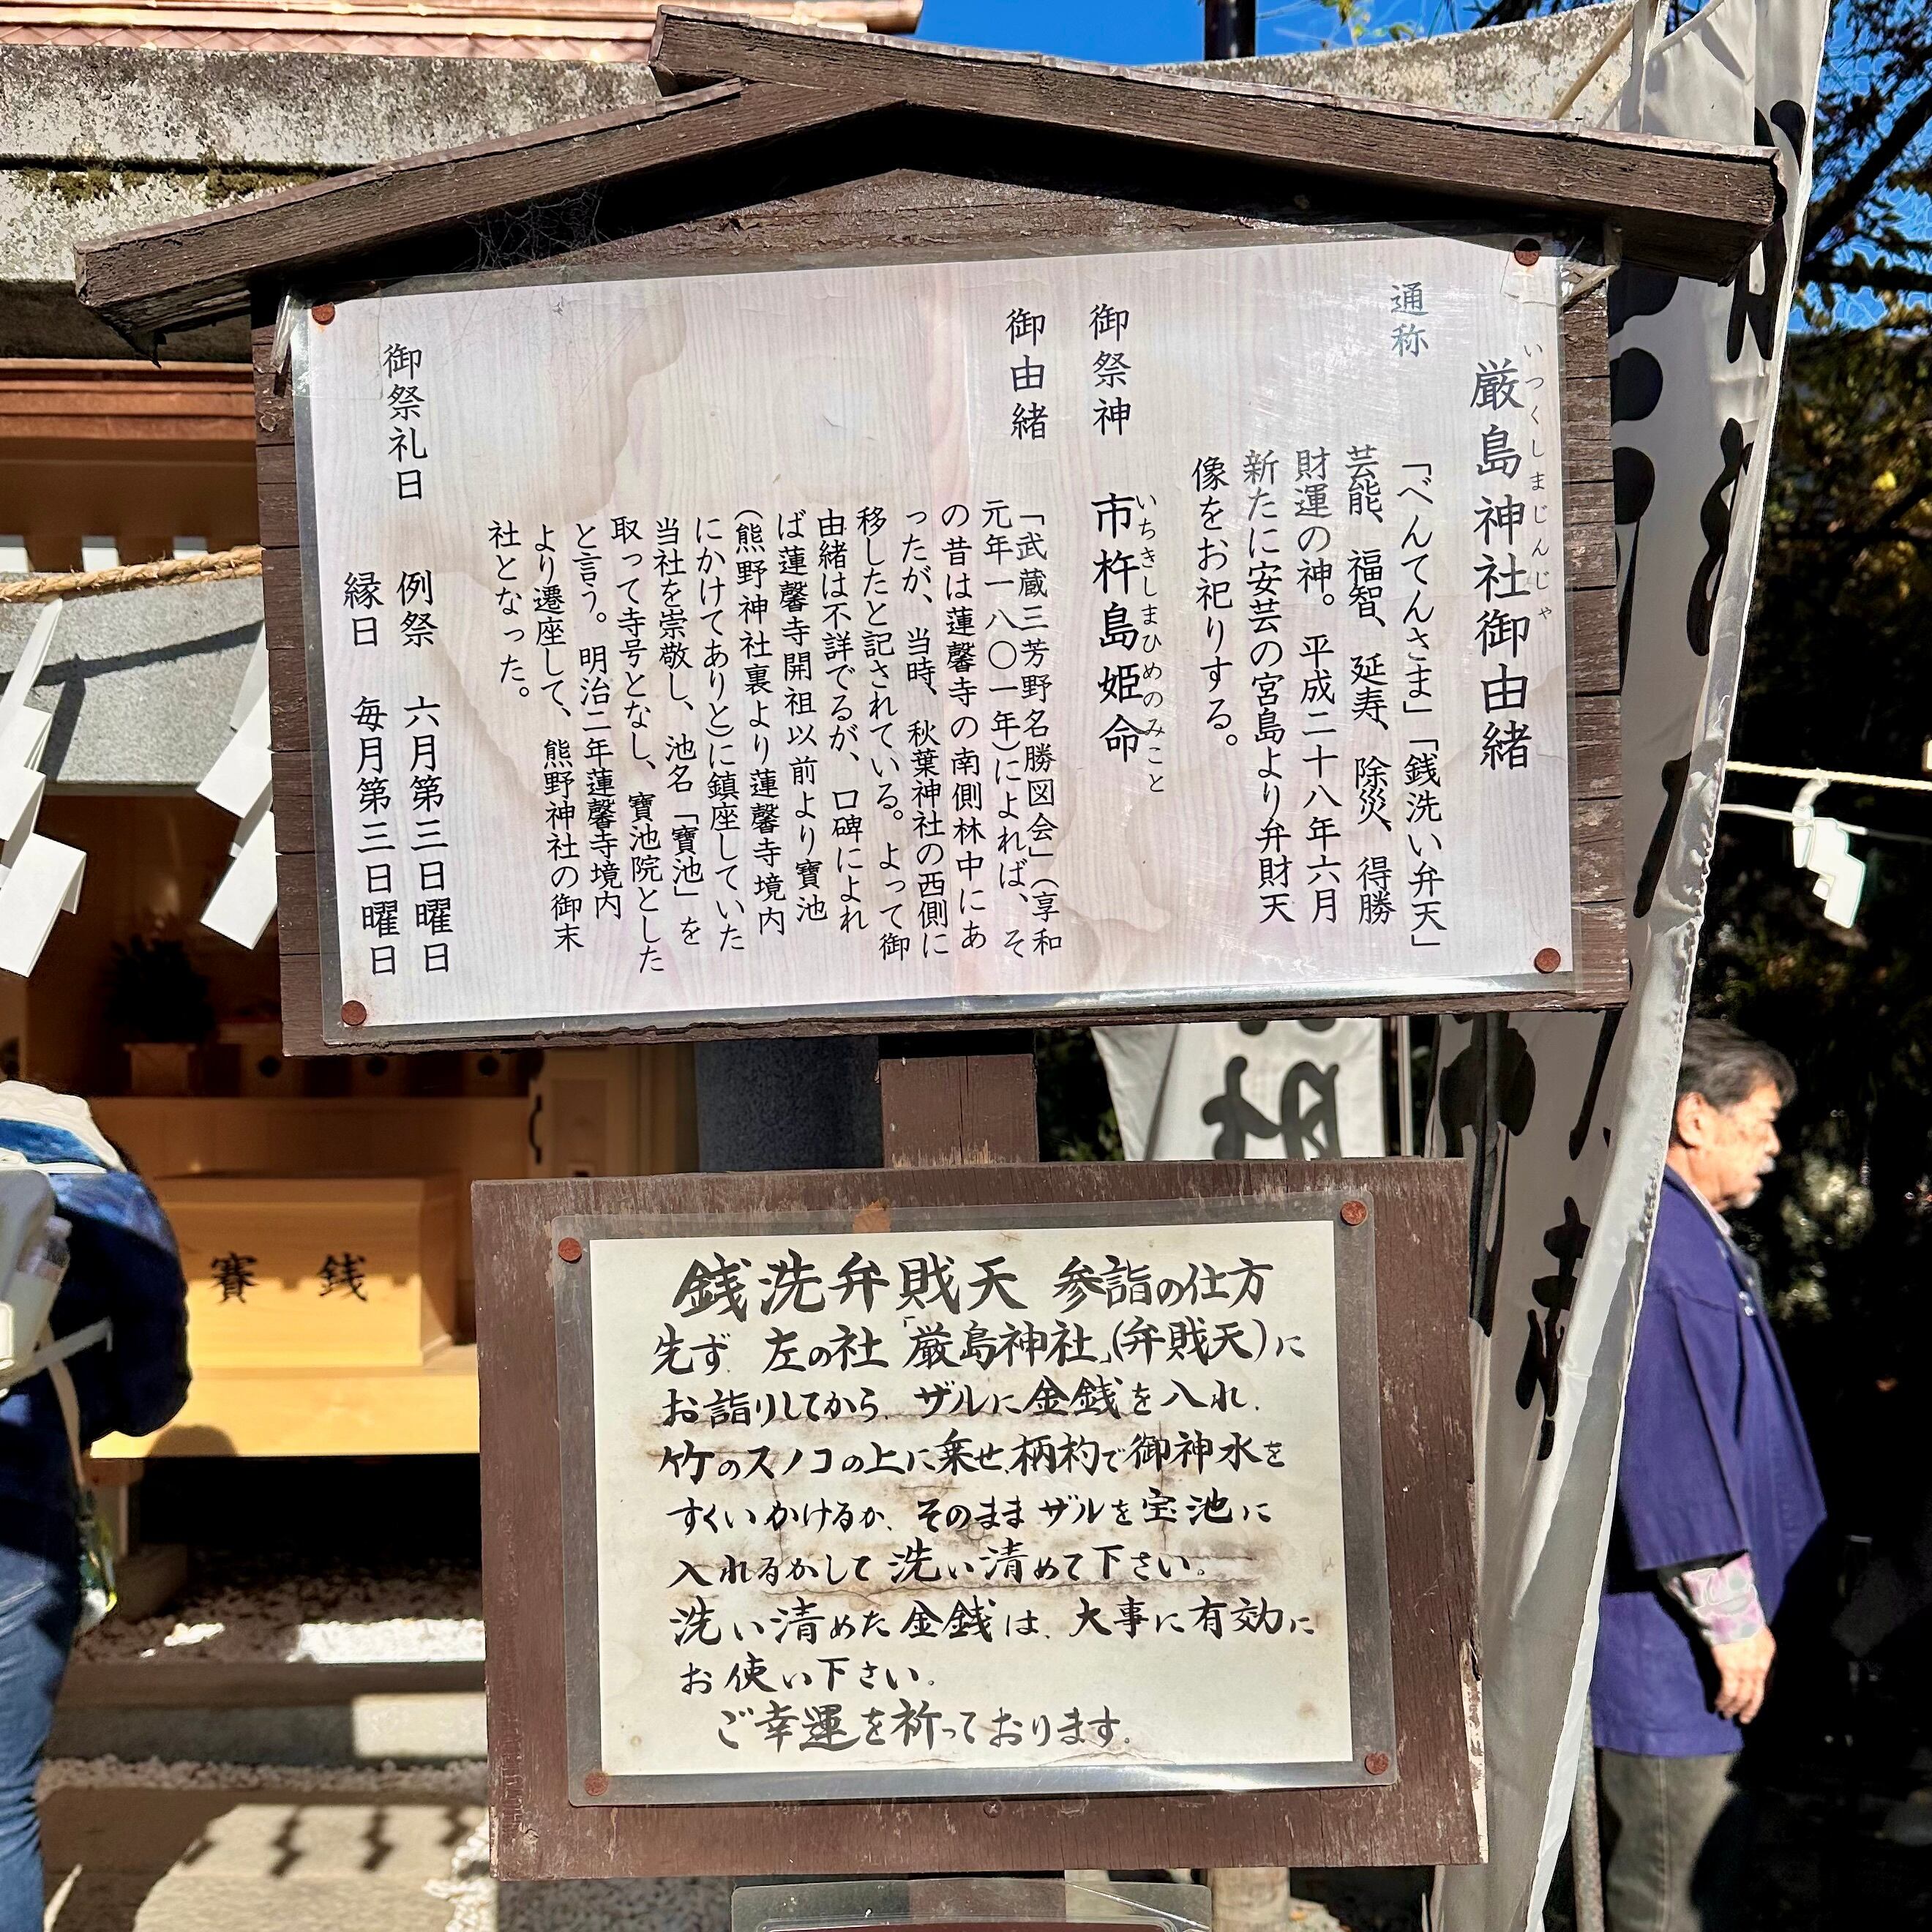 厳島神社御由緒
いつくしまじんじゃ
通称
「べんてんさま」「銭洗い弁天」
芸能、福智、延寿、除災、得勝
財運の神。平成二十八年六月
新たに安芸の宮島より弁財天
像をお祀りする。
御祭神 市杵島姫命
いちきしまひめのみこと
御由緒
「武蔵三芳野名勝図会」(享和
元年一八〇一年)によれば、そ
の昔は蓮馨寺の南側林中にあ
ったが、当時、秋葉神社の西側に
移したと記されている。よって御
由緒は不詳でるが、口碑によれ
ば蓮馨寺開祖以前より寶池
(熊野神社裏より蓮馨寺境内
にかけてありと)に鎮座していた
当社を崇敬し、池名「寶池」を
取って寺号となし、寶池院とした
と言う。明治二年蓮馨寺境内
より遷座して、熊野神社の御末
社となった。
御祭礼日
例祭 六月第三日曜日
縁日 毎月第三日曜日
賽銭
銭洗弁財天 参詣の仕方
先ず 左の社「厳島神社」(弁財天)に
お詣りしてから、ザルに金銭を入れ、
竹のスノコの上に乗せ、柄杓で御神水を
すくいかけるか、そのままザルを宝池に
入れるかして洗い清めて下さい。
洗い清めた金銭は、大事に有効に
お使い下さい。
ご幸運を祈っております。